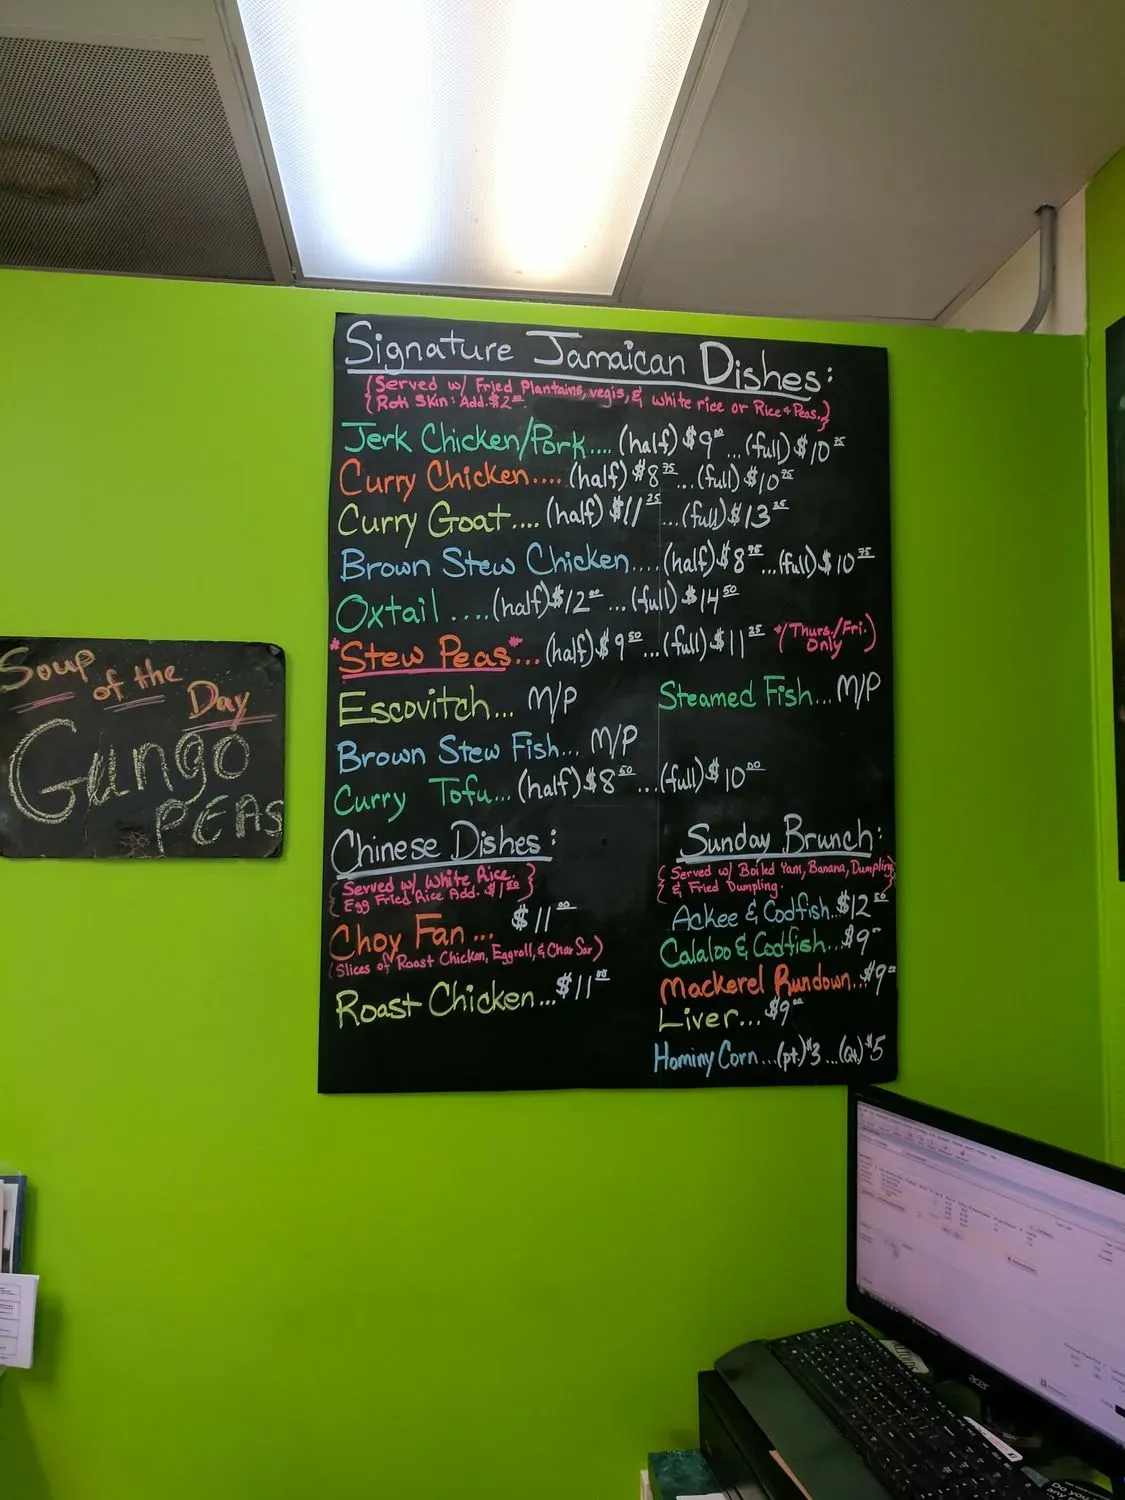 Soup
of the
Day
Gungo
PEAS
Signature Jamaican Dishes:
(Served w/ Fried Plantains, vegis, & white rice or Rice & Peas.)
(Roti Skin: Add. $2.00
Jerk Chicken/Pork.... (half) $9.00 ...(full) $10.75
Curry Chicken.... (half) $8.75 ...(full) $10.75
Curry Goat.... (half) $11.25 ...(full) $13.25
Brown Stew Chicken.... (half) $8.75 ...(full) $10.75
Oxtail ....(half) $12.00 ...(full) $14.50
*Stew Peas*... (half) $9.50 ...(full) $11.25 *(Thurs./Fri. Only)
Escovitch... M/P
Steamed Fish... M/P
Brown Stew Fish... M/P
Curry Tofu... (half) $8.50 ...(full) $10.00
Chinese Dishes:
(Served w/ White Rice.
Egg Fried Rice Add. $1.50)
Choy Fan... $11.00
(Slices of Roast Chicken, Eggroll, & Char Sar)
Roast Chicken... $11.00
Sunday Brunch:
(Served w/ Boiled Yam, Banana, Dumpling,
& Fried Dumpling.)
Ackee & Codfish... $12.50
Calaloo & Codfish... $9.00
Mackerel Rundown... $9.00
Liver... $9.00
Hominy Corn...(pt.) $3 ...(Qt.) $5
acer